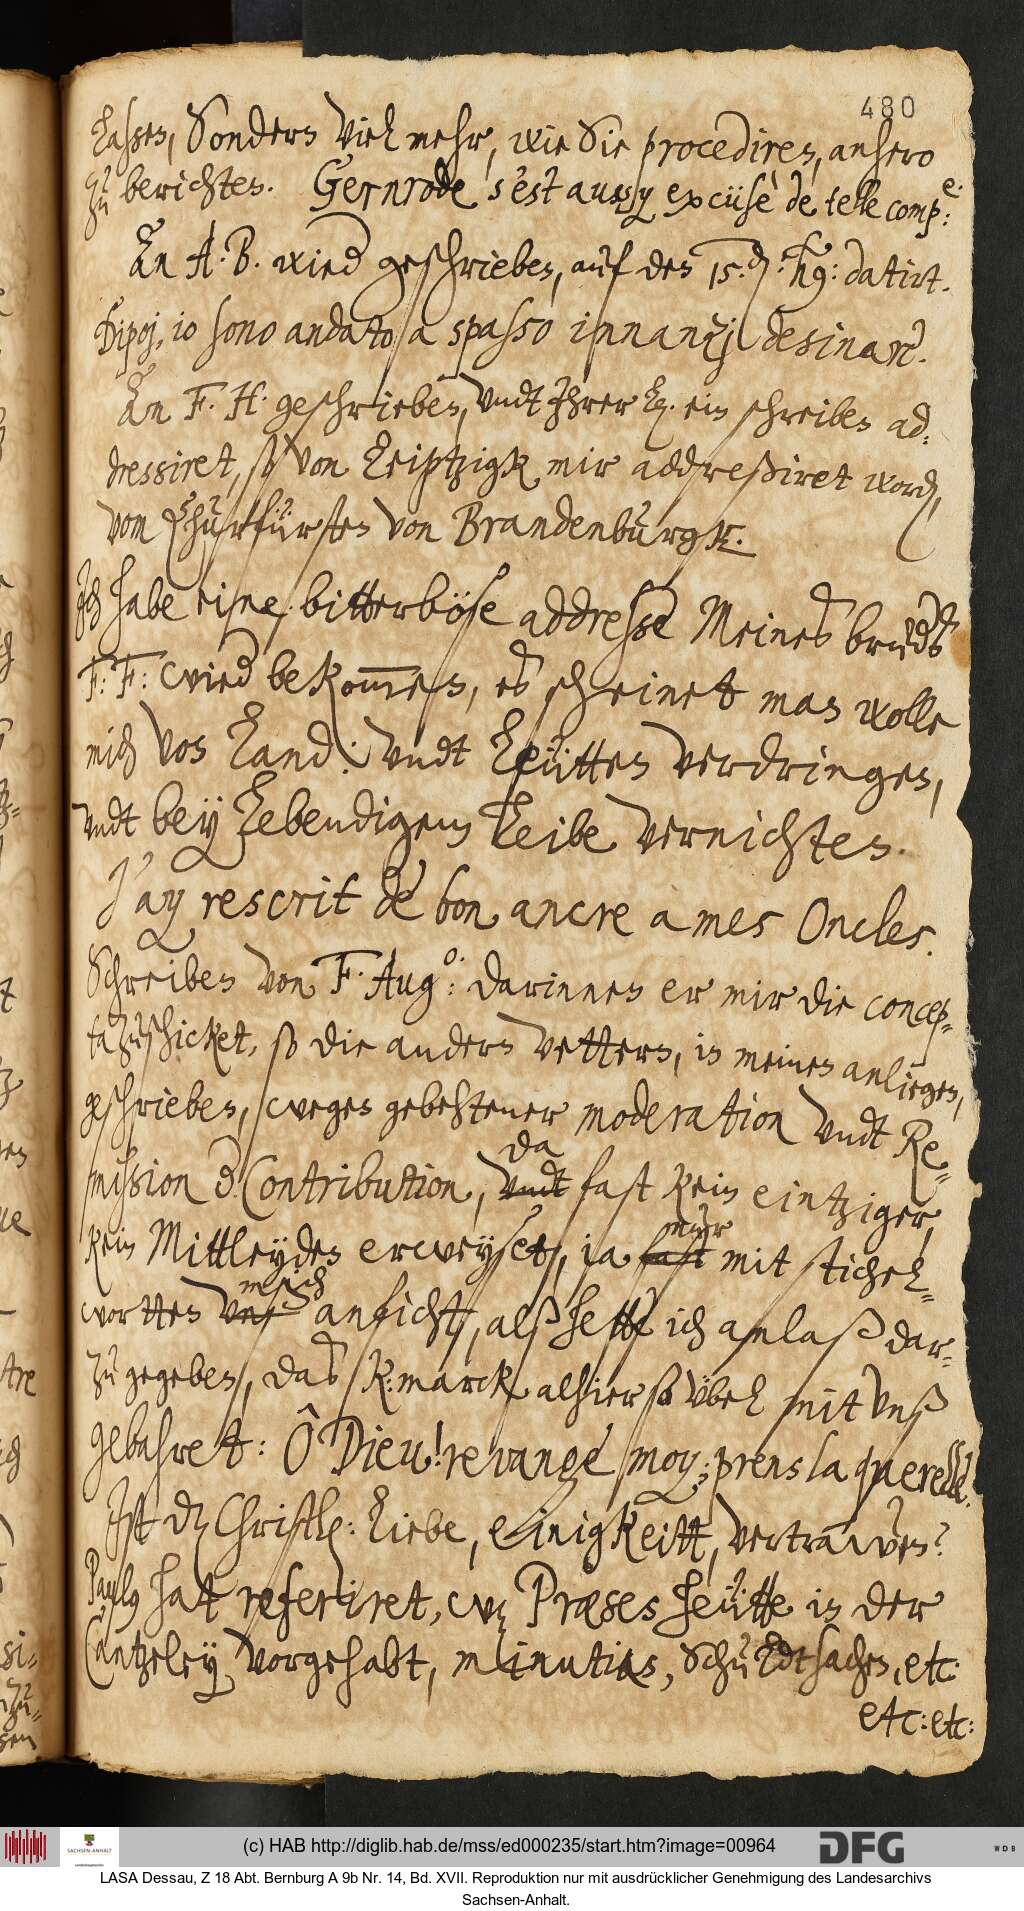 480
laßen, Sondern viel mehr, wie Sie procediren, anhero
zu berichten. Gernrode s'est aussy excüsè de telle comp:e.
An A. B. wied geschrieben, auf den 15.d. hg: datirt.
Dipoj, io sono andato a spasso innanzj desinare.
An F. H. geschrieben, undt Ihrer L. ein schreiben ad-
dressiret, so von Leiptzigk mir addreßiret word,
vom Churfürsten von Brandenburgk.
Ich habe eine bitterböse addresse Meines bruders
F: F: wied bekommen, es scheinet man wolle
mich von Land: undt Leütten verdringen,
undt bey Lebendigem Leibe vernichten.
J'ay rescrit de bon ancre a mes Oncles.
Schreiben von F. Aug:o: darinnen er mir die concep-
ta zuschicket, so die andern Vettern, in meinen anliegen,
geschrieben, wegen gebehtener moderation undt Re-
da
mission d. Contribution, undt fast kein eintziger,
nur
kein Mittleyden erweyset, ia fast mit stichel-
mich
wortten uns anficht, alß hette ich anlaß dar-
zu gegeben, das K:marck alhier so übel mit unß
gebahret: Ô Dieu! revange moy; prens la querelle.
Ist dz Christl: Liebe, einigkeitt, vertrawen?
Paulus hat referiret, wz Præses heütte in der
Cantzeley vorgehabt, minutias, Schuldtsachen, etc.
etc: etc:
(c) HAB http://diglib.hab.de/mss/ed000235/start.htm?image=00964
SACHSEN-ANHALT
DFG
WDB
LASA Dessau, Z 18 Abt. Bernburg A 9b Nr. 14, Bd. XVII. Reproduktion nur mit ausdrücklicher Genehmigung des Landesarchivs
Sachsen-Anhalt.